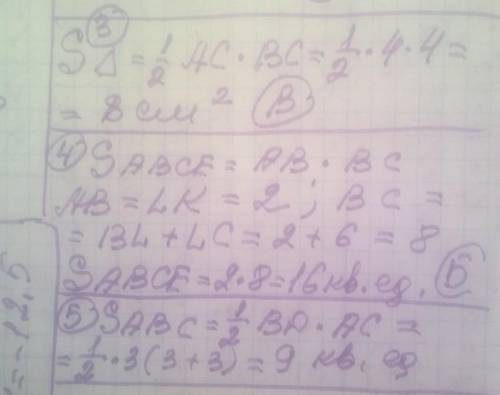 ③
S∆ = 1/2 AC · BC = 1/2 · 4 · 4 =
= 8 см² Ⓑ
④ SABCE = AB · BC
AB = LK = 2 ; BC =
= BL + LC = 2 + 6 = 8
SABCE = 2 · 8 = 16 кв. ед. Ⓑ
⑤ SABC = 1/2 BD · AC =
= 1/2 · 3 (3 + 3) = 9 кв. ед